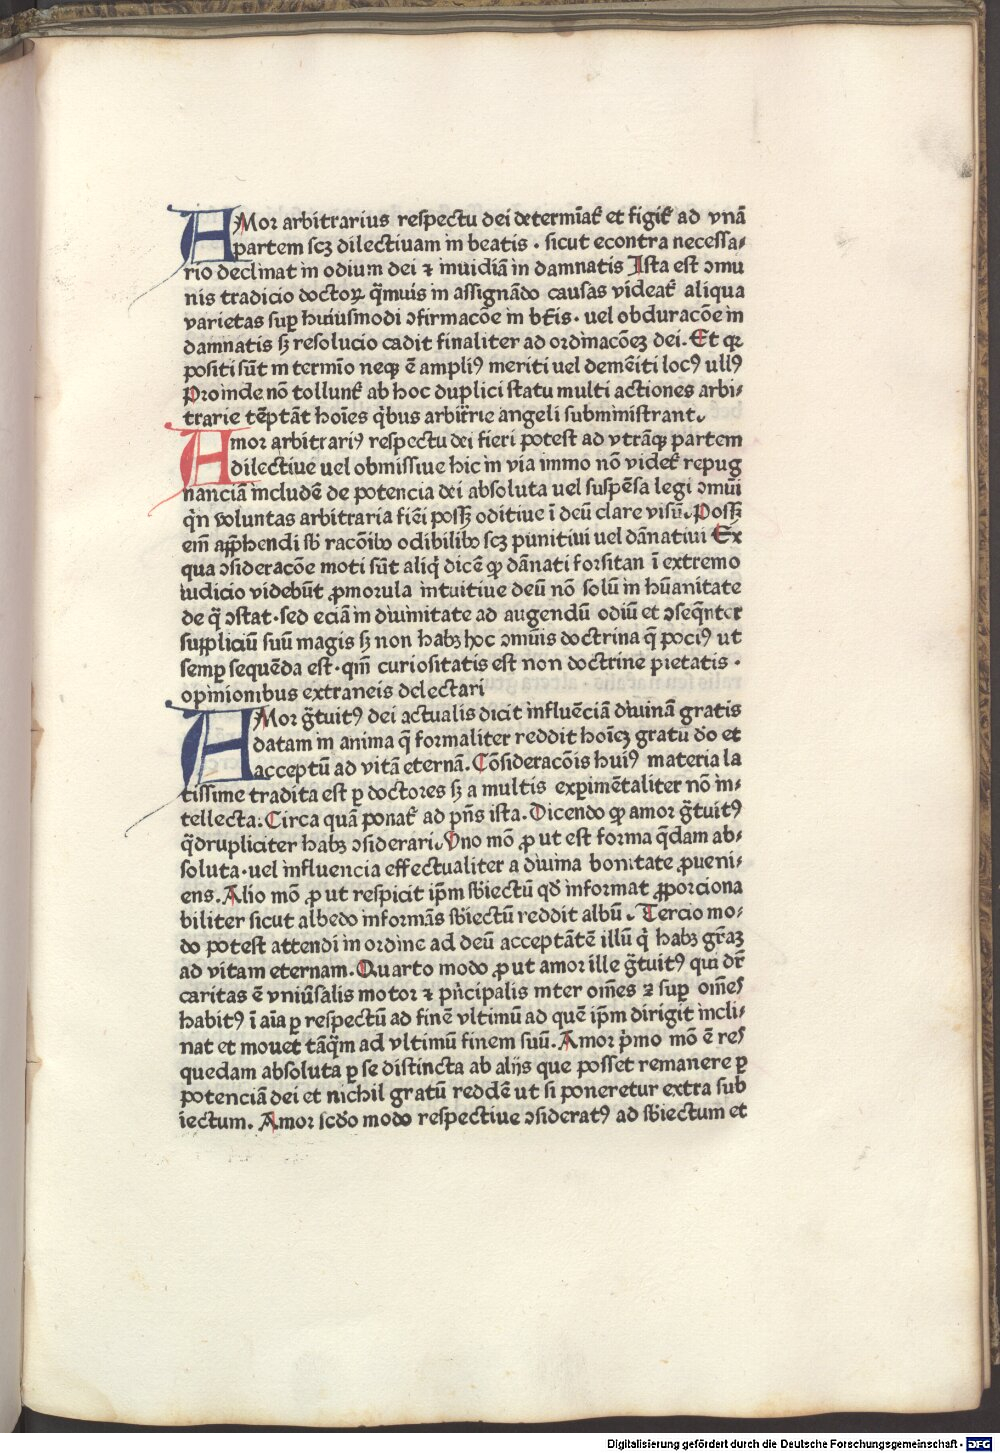 AMor arbitrarius respectu dei determiāt̉ et figit̉ ad vnā
partem scꝫ dilectiuam in beatis · sicut econtra necessa⸗
rio declinat in odium dei ⁊ inuidiā in damnatis Ista est ↄmu
nis tradicio doctoꝝ q̄muis in assignādo causas videat̉ aliqua
varietas sup̱ huiusmodi ↄfirmacōe in bt̄is · uel obduracōe in
damnatis sꝫ resolucio cadit finaliter ad ordinacōeꝫ dei. Et qꝛ
positi sūt in termīo neqꝫ ē ampliꝰ meriti uel demēiti locꝰ ullꝰ
Proinde nō tollunt̉ ab hoc duplici statu multi actiones arbi⸗
trarie tēptāt hoīes q̄bus arbit̄rie angeli subministrant.
Amor arbitrariꝰ respectu dei fieri potest ad vtrāqꝫ partem
dilectiue uel obmissiue hic in via immo nō videt̉ repug
nanciā includē de potencia dei absoluta uel suspēsa legi ↄmūi
q̇n voluntas arbitraria fiēi possꝫ oditiue ī deū clare visū. Possꝫ
eīn ap̄p̄hendi sb̄ racōnibꝰ odibilibꝰ scꝫ punitiui uel dānatiui Ex
qua ↄsideracōe moti sūt aliq̇ dicē ꝙ dānati forsitan ī extremo
iudicio videbūt ꝓmorula intuitiue deū nō solū in hūanitate
de q̄ ↄstat · sed eciā in diuinitate ad augendū odiū et ↄseq̄nter
suppliciū suū magis sꝫ non habꝫ hoc ↄmūis doctrina q̄ pociꝰ ut
semp̱ sequēda est · qm̄ curiositatis est non doctrine pietatis ·
opinionibus extraneis delectari
AMor ḡtuitꝰ dei actualis dicit influēciā diuinā gratis
datam in anima q̄ formaliter reddit hoīeꝫ gratū dō et
acceptū ad vitā eternā. Cōsideracōis huiꝰ materia la
tissime tradita est ꝑ doctores sꝫ a multis exꝑimētaliter nō in⸗
tellecta: Circa quā ponat̉ ad p̄ns ista. Dicendo ꝙ amor ḡtuitꝰ
q̄drupliciter habꝫ ↄsiderari. Vno mō ꝓ ut est forma q̄dam ab⸗
soluta · uel influencia effectualiter a diuina bonitate ꝓueni⸗
ens. Alio mō ꝓ ut respicit ip̄m sb̄iectū qd̄ informat ꝓporciona
biliter sicut albedo informās sb̄iectū reddit albū. Tercio mo⸗
do potest attendi in ordine ad deū acceptātē illū q̇ habꝫ gr̄aꝫ
ad vitam eternam. Quarto modo ꝓ ut amor ille ḡtuitꝰ qui dr̄
caritas ē vniūsalis motor ⁊ p̄ncipalis inter oīnes ⁊ sup̱ oīnes
habitꝰ ī aīa ꝑ respectū ad finē vltimū ad quē ip̄m dirigit incli⸗
nat et mouet tāq̄m ad vltimū finem suū. Amor ṗmo mō ē res
quedam absoluta ꝑ se distincta ab alijs que posset remanere ꝑ
potenciā dei et nichil gratū reddē ut si poneretur extra sub
iectum. Amor scd̄o modo respectiue ↄsideratꝰ ad sb̄iectum et
Digitalisierung gefördert durch die Deutsche Forschungsgemeinschaft - DFG